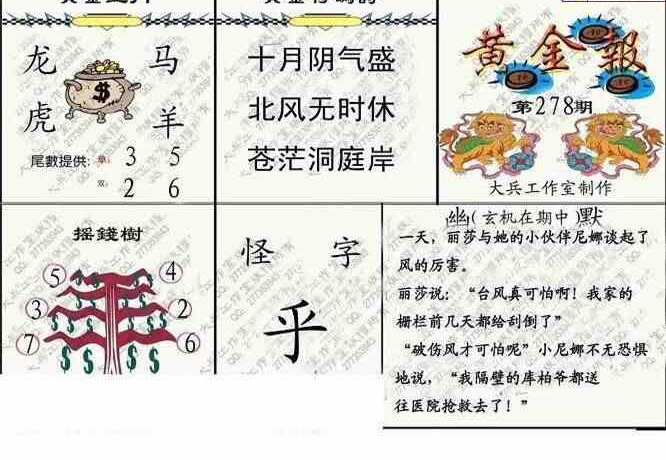 龙 马
虎 羊
$
尾數提供: 单: 3 5
双: 2 6
十月阴气盛
北风无时休
苍茫洞庭岸
黄金報
第278期
大兵工作室制作
摇錢樹
5 4
3 2
7 6
$ $ $ $ $ $
怪 字
乎
幽(玄机在期中)默
一天，丽莎与她的小伙伴尼娜谈起了
风的厉害。
丽莎说：“台风真可怕啊！我家的
栅栏前几天都给刮倒了”
“破伤风才可怕呢”小尼娜不无恐惧
地说，“我隔壁的库柏爷都送
往医院抢救去了！”